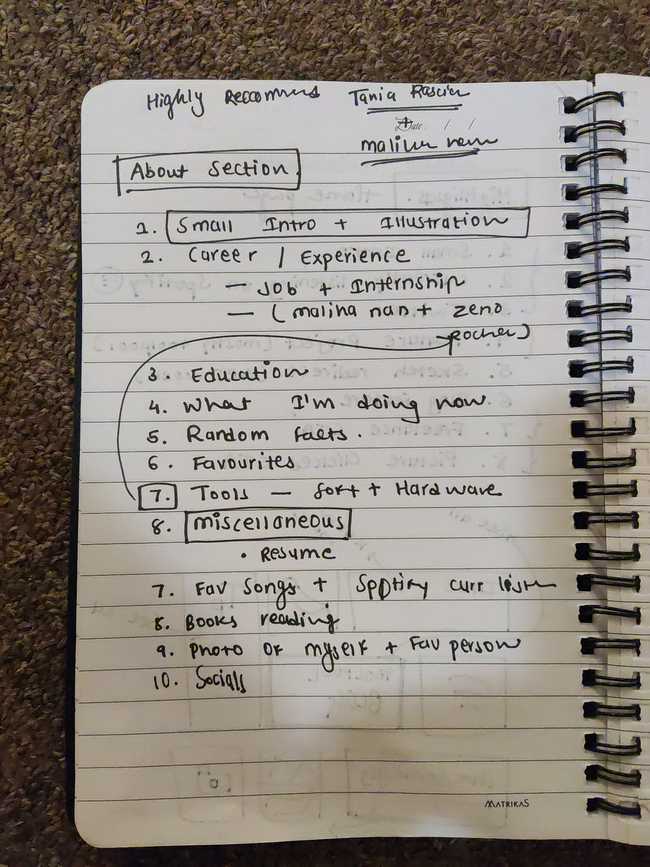 Highly Recommens Tania Rascia
Date / /
+
malina nan
About Section
1. Small Intro + Illustration
2. Career / Experience
— Job + Internship
— (malina nan + zeno
rocha)
3. Education
4. What I'm doing now
5. Random facts.
6. Favourites
7. Tools — Soft + Hardware
8. miscellaneous
• Resume
7. Fav Songs + Spotify curr listen
8. Books reading
9. Photo of myself + Fav person
10. Socials
MATRIKAS